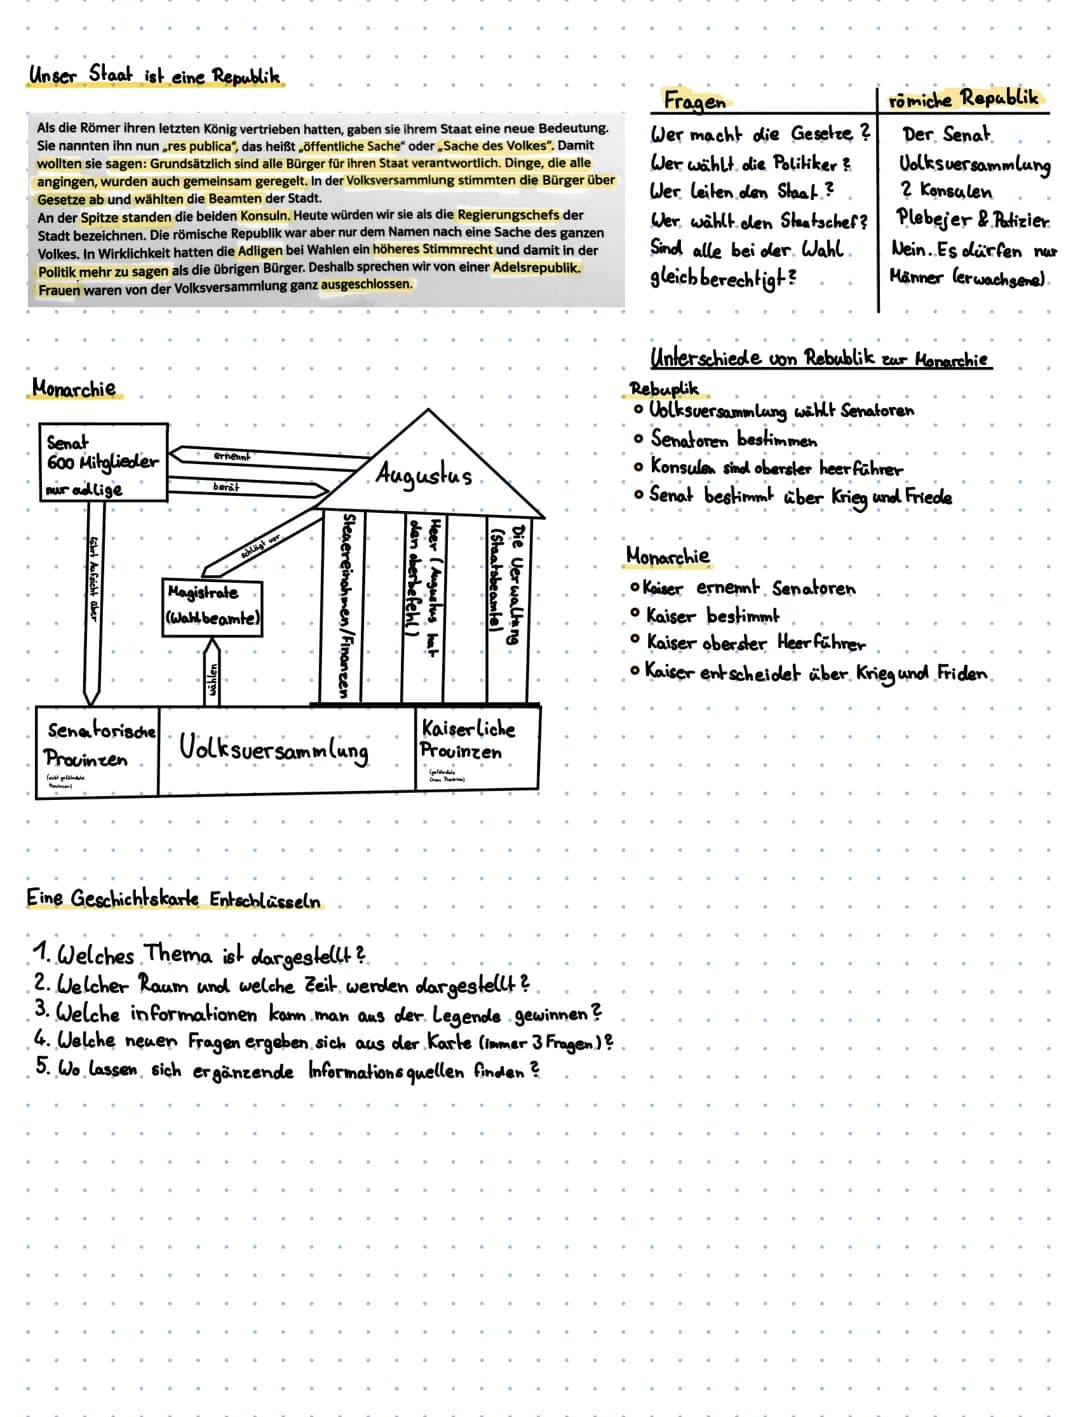 Unser Staat ist eine Republik
Als die Römer ihren letzten König vertrieben hatten, gaben sie ihrem Staat eine neue Bedeutung.
Sie nannten ihn nun „res publica“, das heißt „öffentliche Sache“ oder „Sache des Volkes“. Damit
wollten sie sagen: Grundsätzlich sind alle Bürger für ihren Staat verantwortlich. Dinge, die alle
angingen, wurden auch gemeinsam geregelt. In der Volksversammlung stimmten die Bürger über
Gesetze ab und wählten die Beamten der Stadt.
An der Spitze standen die beiden Konsuln. Heute würden wir sie als die Regierungschefs der
Stadt bezeichnen. Die römische Republik war aber nur dem Namen nach eine Sache des ganzen
Volkes. In Wirklichkeit hatten die Adligen bei Wahlen ein höheres Stimmrecht und damit in der
Politik mehr zu sagen als die übrigen Bürger. Deshalb sprechen wir von einer Adelsrepublik.
Frauen waren von der Volksversammlung ganz ausgeschlossen.
Fragen römiche Republik
Wer macht die Gesetze? Der Senat
Wer wählt die Politiker? Volksversammlung
Wer leiten den Staat? 2 Konsulen
Wer wählt den Staatschef? Plebejer & Patizier
Sind alle bei der Wahl Nein. Es dürfen nur
gleichberechtigt? Männer (erwachsene).
Unterschiede von Rebublik zur Monarchie
Rebuplik
• Volksversammlung wählt Senatoren
• Senatoren bestimmen
• Konsulen sind oberster heerführer
• Senat bestimmt über Krieg und Friede
Monarchie
• Kaiser ernennt Senatoren
• Kaiser bestimmt
• Kaiser oberster Heerführer
• Kaiser entscheidet über Krieg und Friden
Monarchie
Senat
600 Mitglieder
nur adlige
ernennt
berät
Augustus
schlägt vor
führt Aufsicht über
Magistrate
(Wahlbeamte)
wählen
Steuereinahmen/Finanzen
Heer (Augustus hat
den oberbefehl)
Die Verwaltung
(Staatsbeamte)
Senatorische
Provinzen
Volksversammlung
Kaiserliche
Provinzen
Eine Geschichtskarte Entschlüsseln
1. Welches Thema ist dargestellt?
2. Welcher Raum und welche Zeit werden dargestellt?
3. Welche informationen kann man aus der Legende gewinnen?
4. Welche neuen Fragen ergeben sich aus der Karte (immer 3 Fragen)?
5. Wo lassen sich ergänzende Informationsquellen finden?